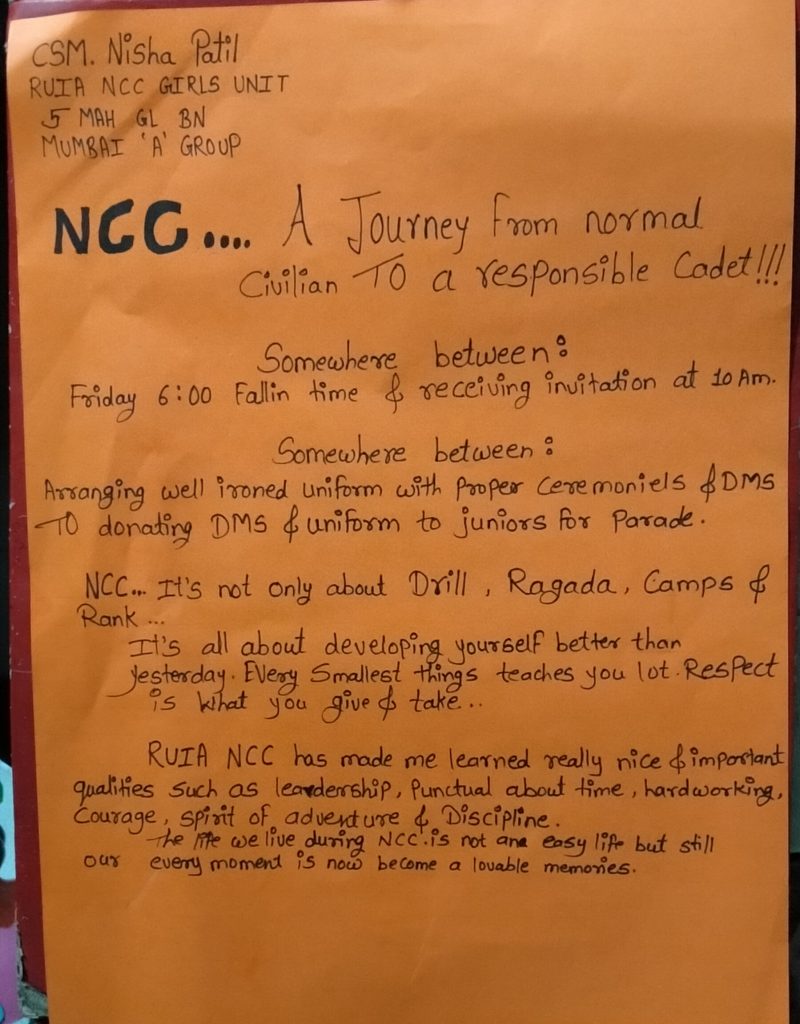 CSM. Nisha Patil
RUIA NCC GIRLS UNIT
5 MAH GL BN
MUMBAI 'A' GROUP
NCC.... A Journey from normal
Civilian TO a responsible Cadet!!!
Somewhere between:
Friday 6:00 Fallin time & receiving invitation at 10 Am.
Somewhere between:
Arranging well ironed uniform with proper ceremoniels & DMS
TO donating DMS & uniform to juniors for Parade.
NCC... It's not only about Drill, Ragada, Camps &
Rank...
It's all about developing yourself better than
yesterday. Every smallest things teaches you lot. Respect
is what you give & take...
RUIA NCC has made me learned really nice & important
qualities such as leardership, Punctual about time, hardworking,
Courage, spirit of adventure & Discipline.
The life we live during NCC is not ane easy life but still
our every moment is now become a lovable memories.